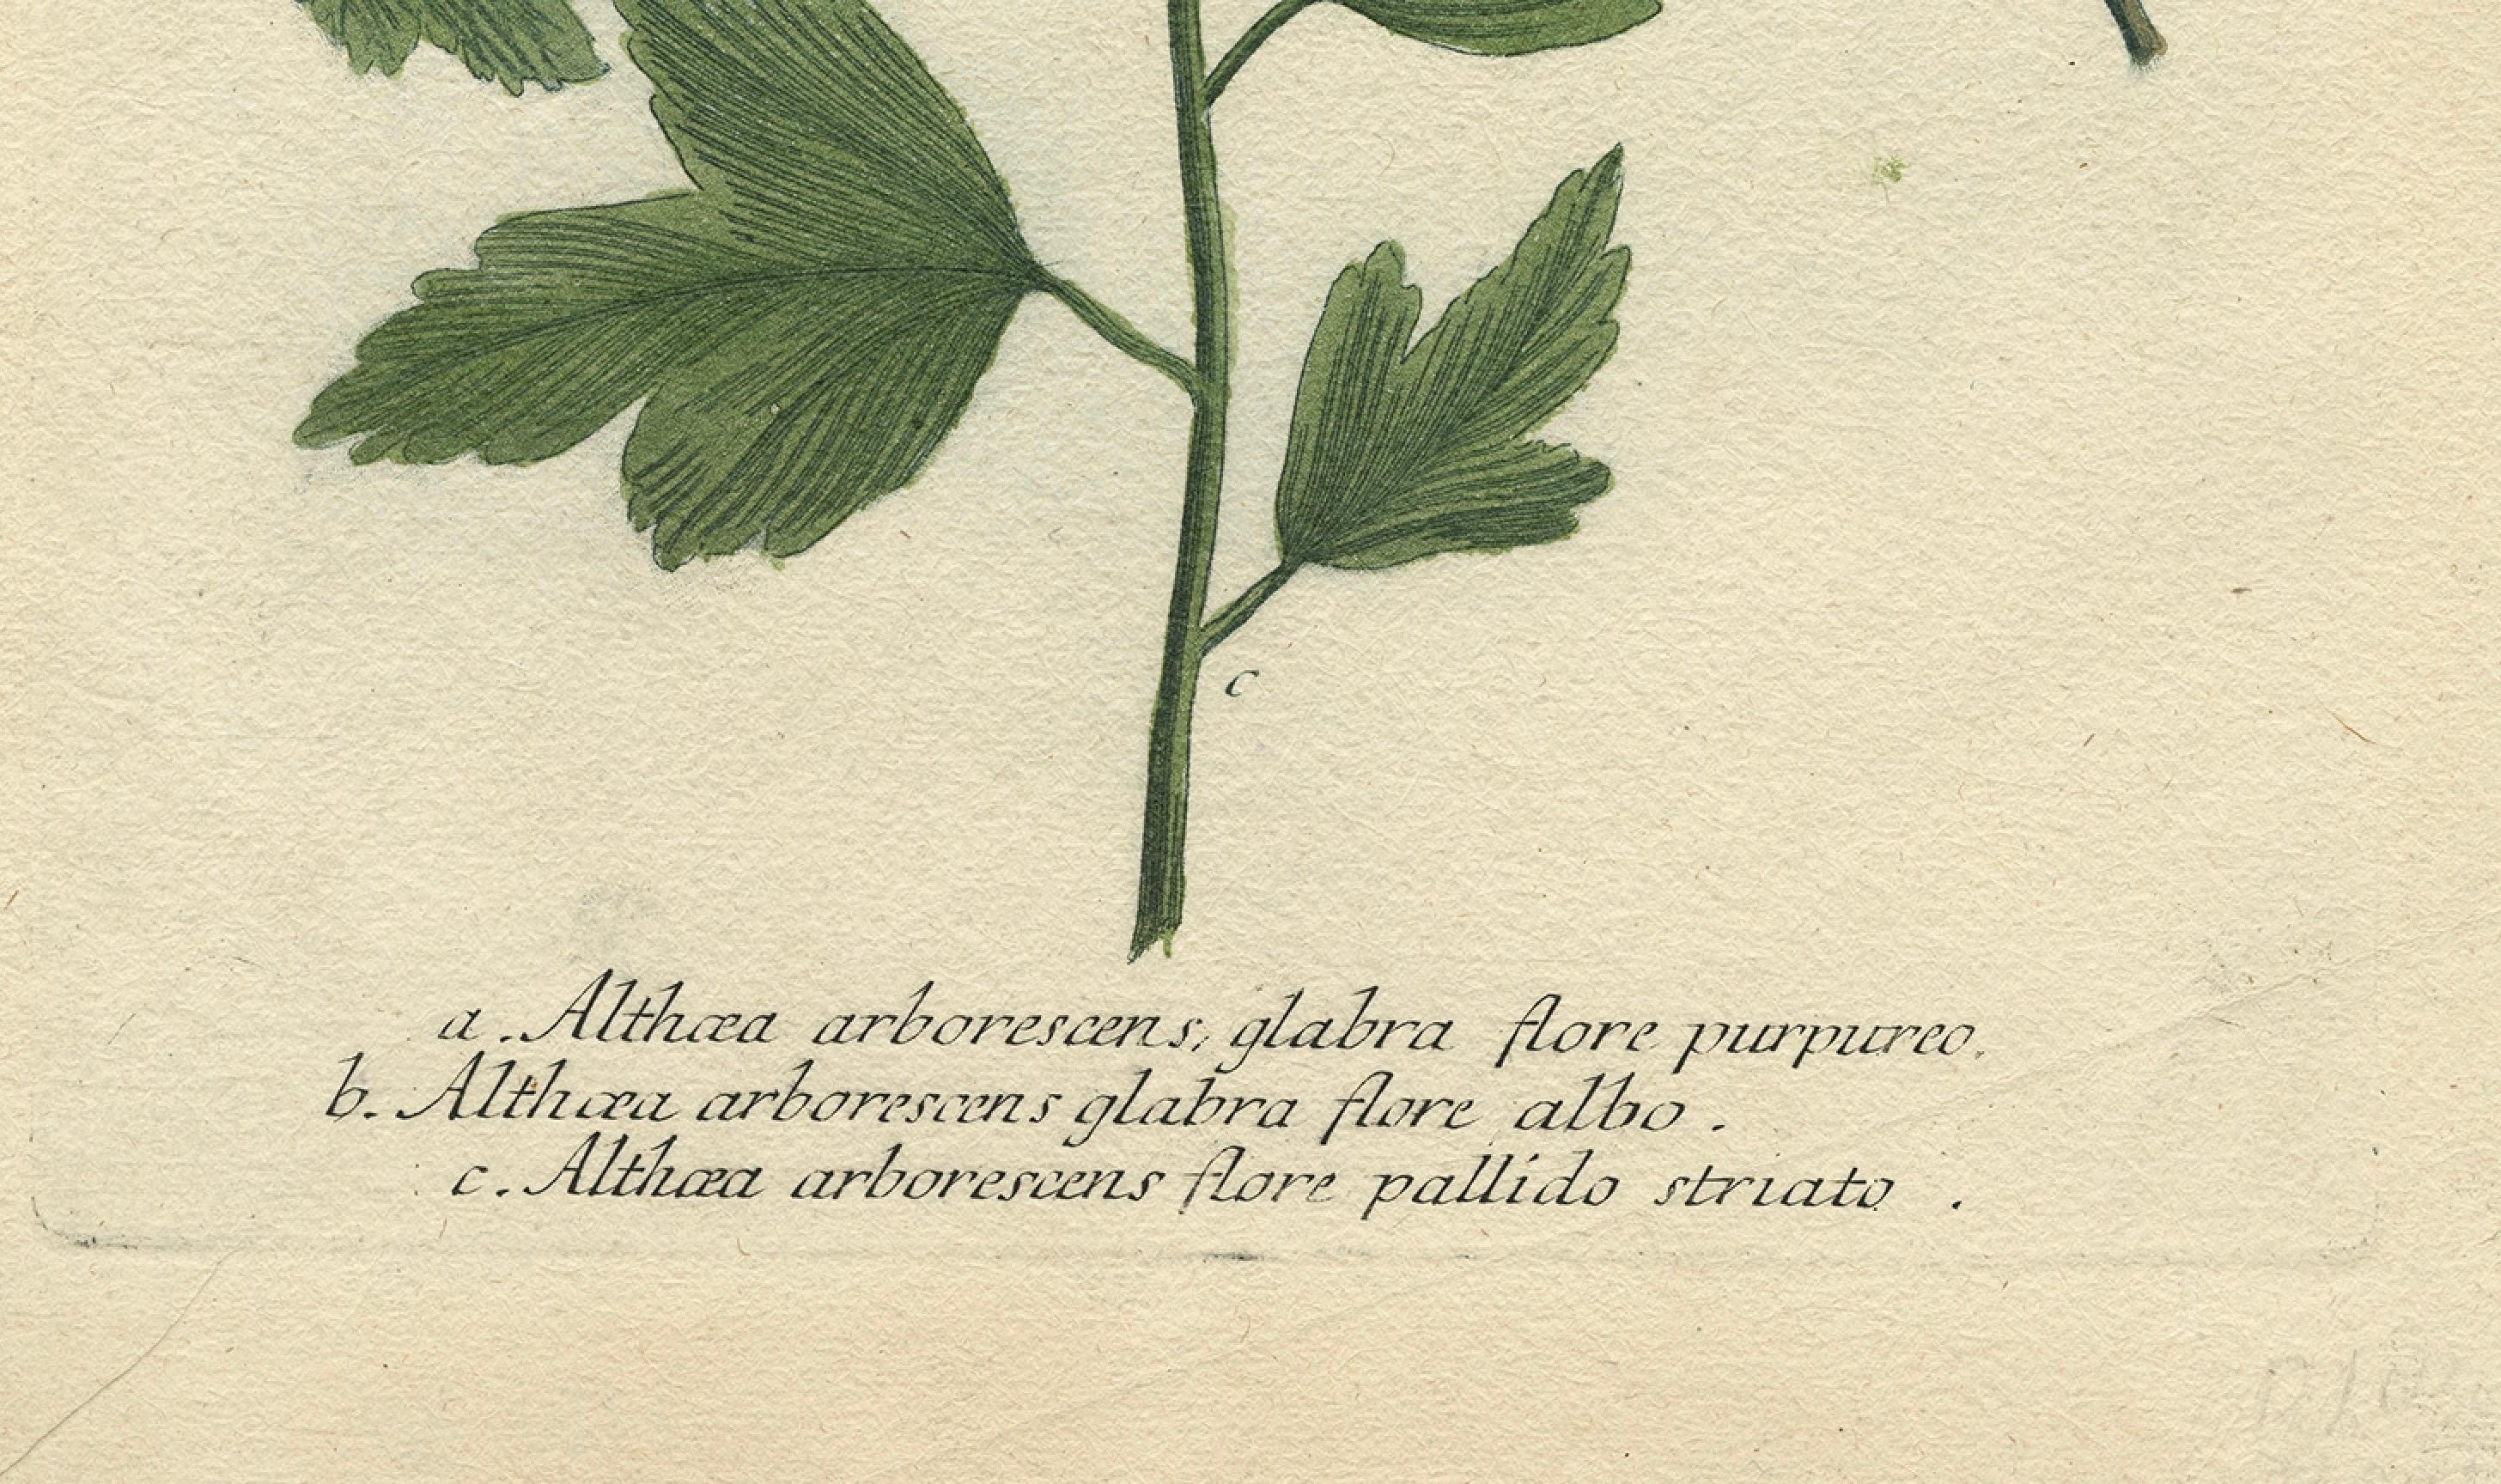 c
a. Althæa arborescens, glabra flore purpureo.
b. Althæa arborescens glabra flore albo.
c. Althæa arborescens flore pallido striato.